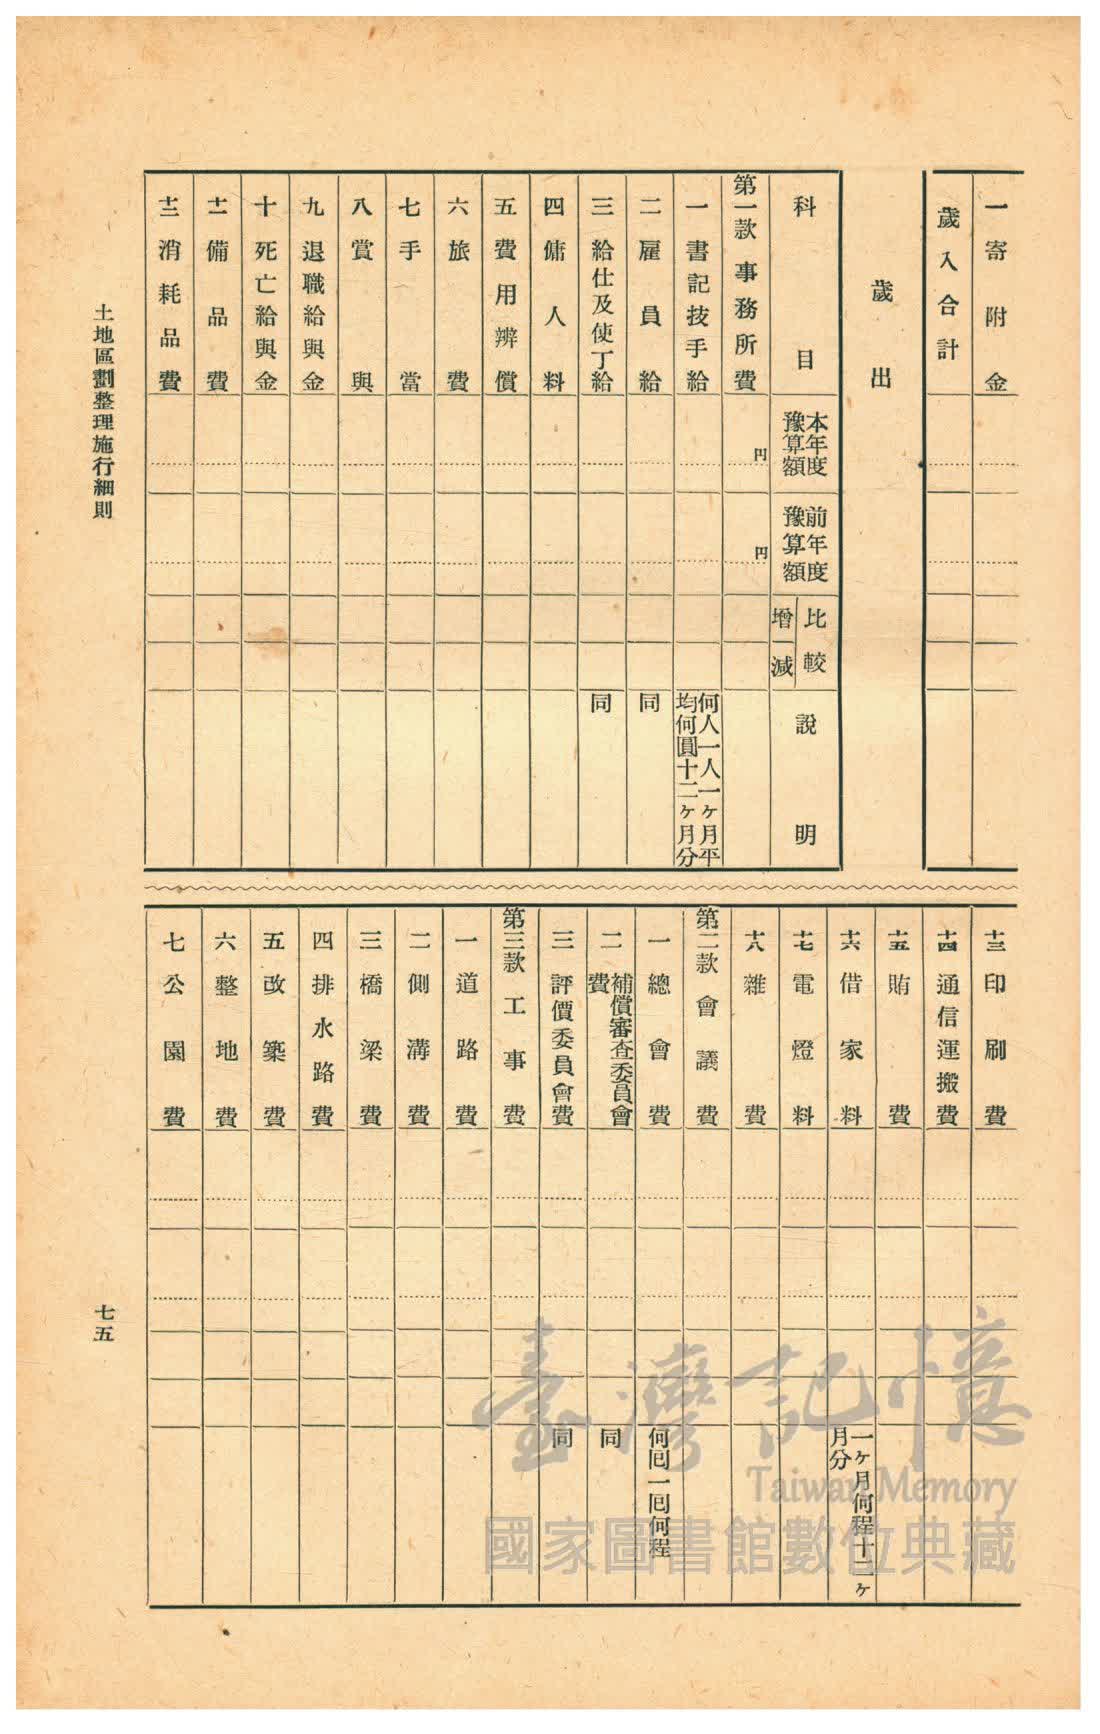 一寄附金
歲入合計
歲出
科目
本年度豫算額
前年度豫算額
比較
增
減
說明
第一款事務所費
円
円
一書記技手給
何人一人一ヶ月平均何圓十二ヶ月分
二雇員給
同
三給仕及使丁給
同
四傭人料
五費用辨償
六旅費
七手當
八賞與
九退職給與金
十死亡給與金
十一備品費
十二消耗品費
十三印刷費
十四通信運搬費
十五賄費
十六借家料
一ヶ月何程十二ヶ月分
十七電燈料
十八雜費
第二款會議費
一總會費
何囘一囘何程
二補償審査委員會費
同
三評價委員會費
同
第三款工事費
一道路費
二側溝費
三橋梁費
四排水路費
五改築費
六整地費
七公園費
土地區劃整理施行細則
七五
臺灣記憶
Taiwan Memory
國家圖書館數位典藏